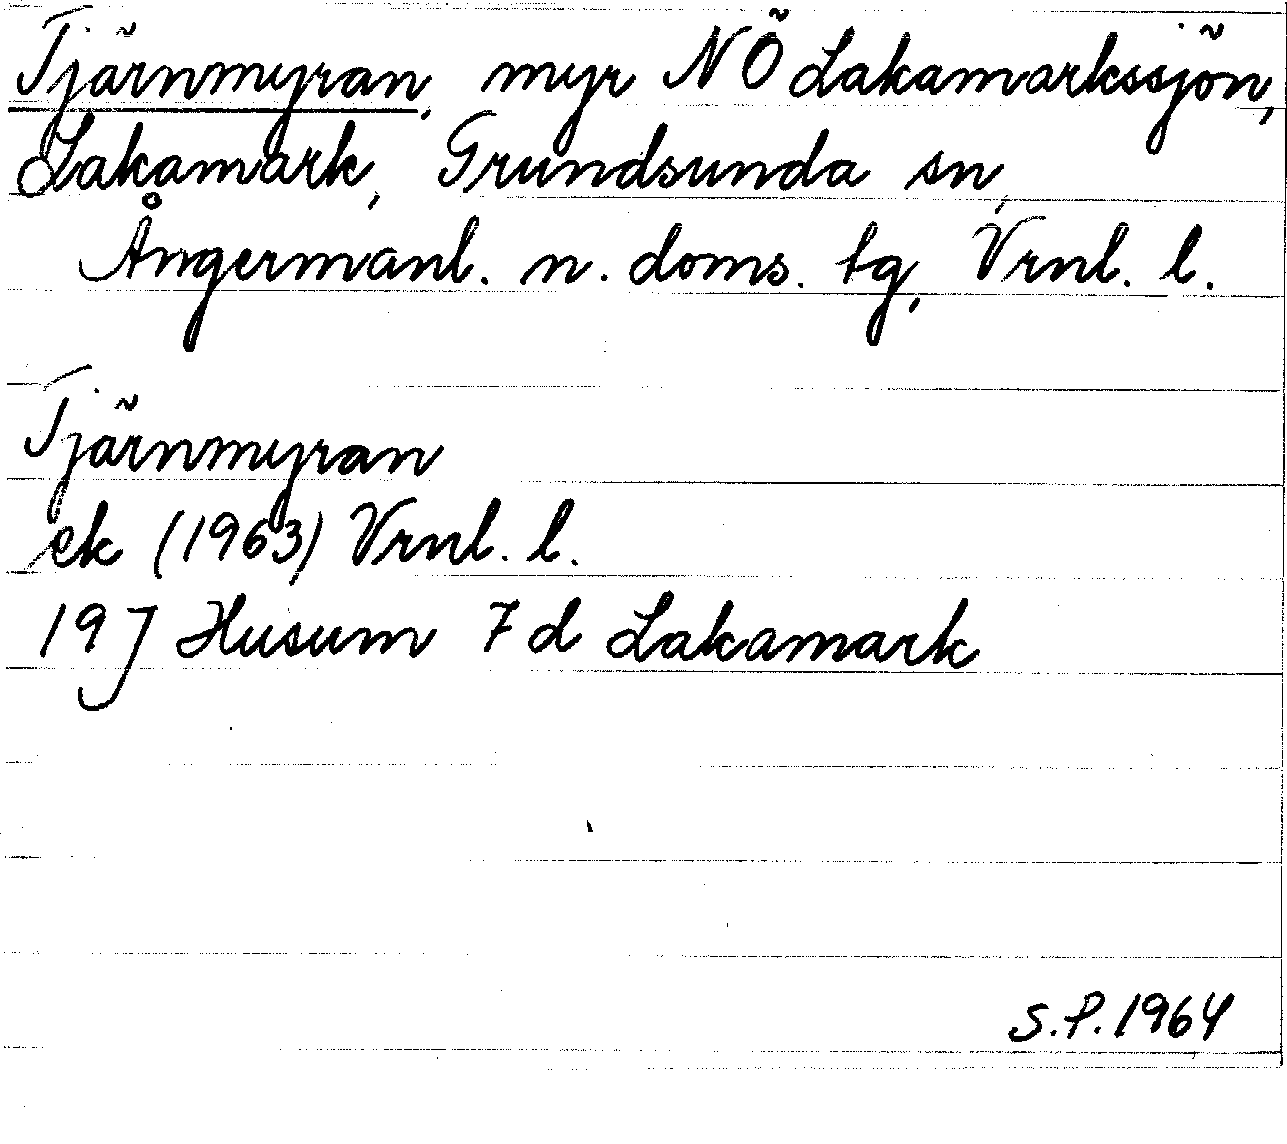 Tjärnmyran, myr NÖ Lakamarkssjön,
Lakamark, Grundsunda sn,
Ångermanl. n. doms. tg, Vrnl. l.
Tjärnmyran
ek (1963) Vrnl. l.
19 J Husum 7 d Lakamark
S.P. 1964